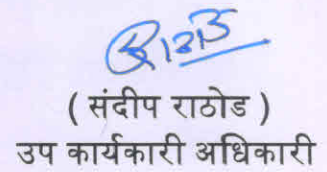 ( संदीप राठोड )
उप कार्यकारी अधिकारी